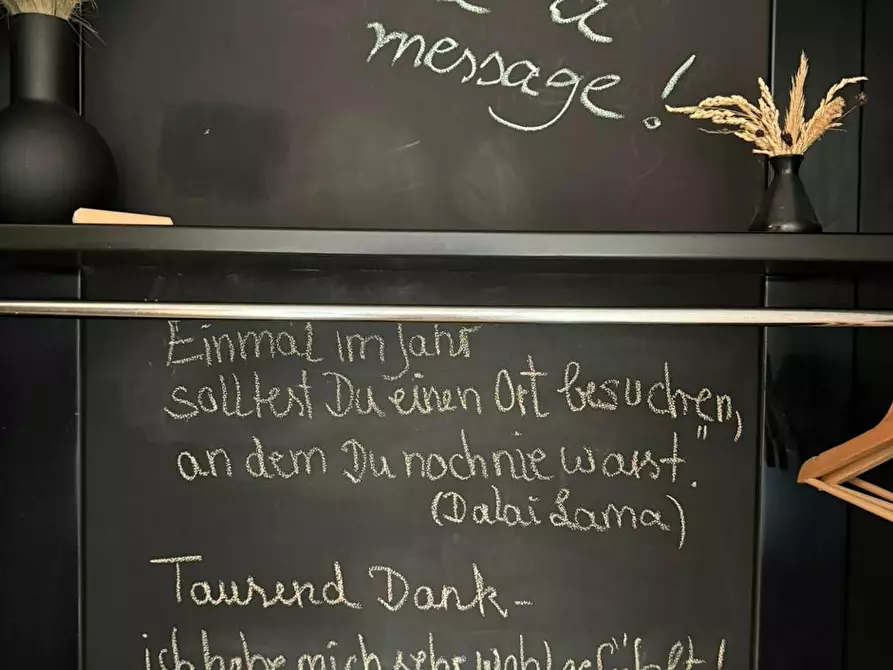 a
message!
Einmal im Jahr
solltest Du einen Ort besuchen,
an dem Du noch nie warst."
(Dalai Lama)
Tausend Dank -
ich habe mich sehr wohl gefühlt!